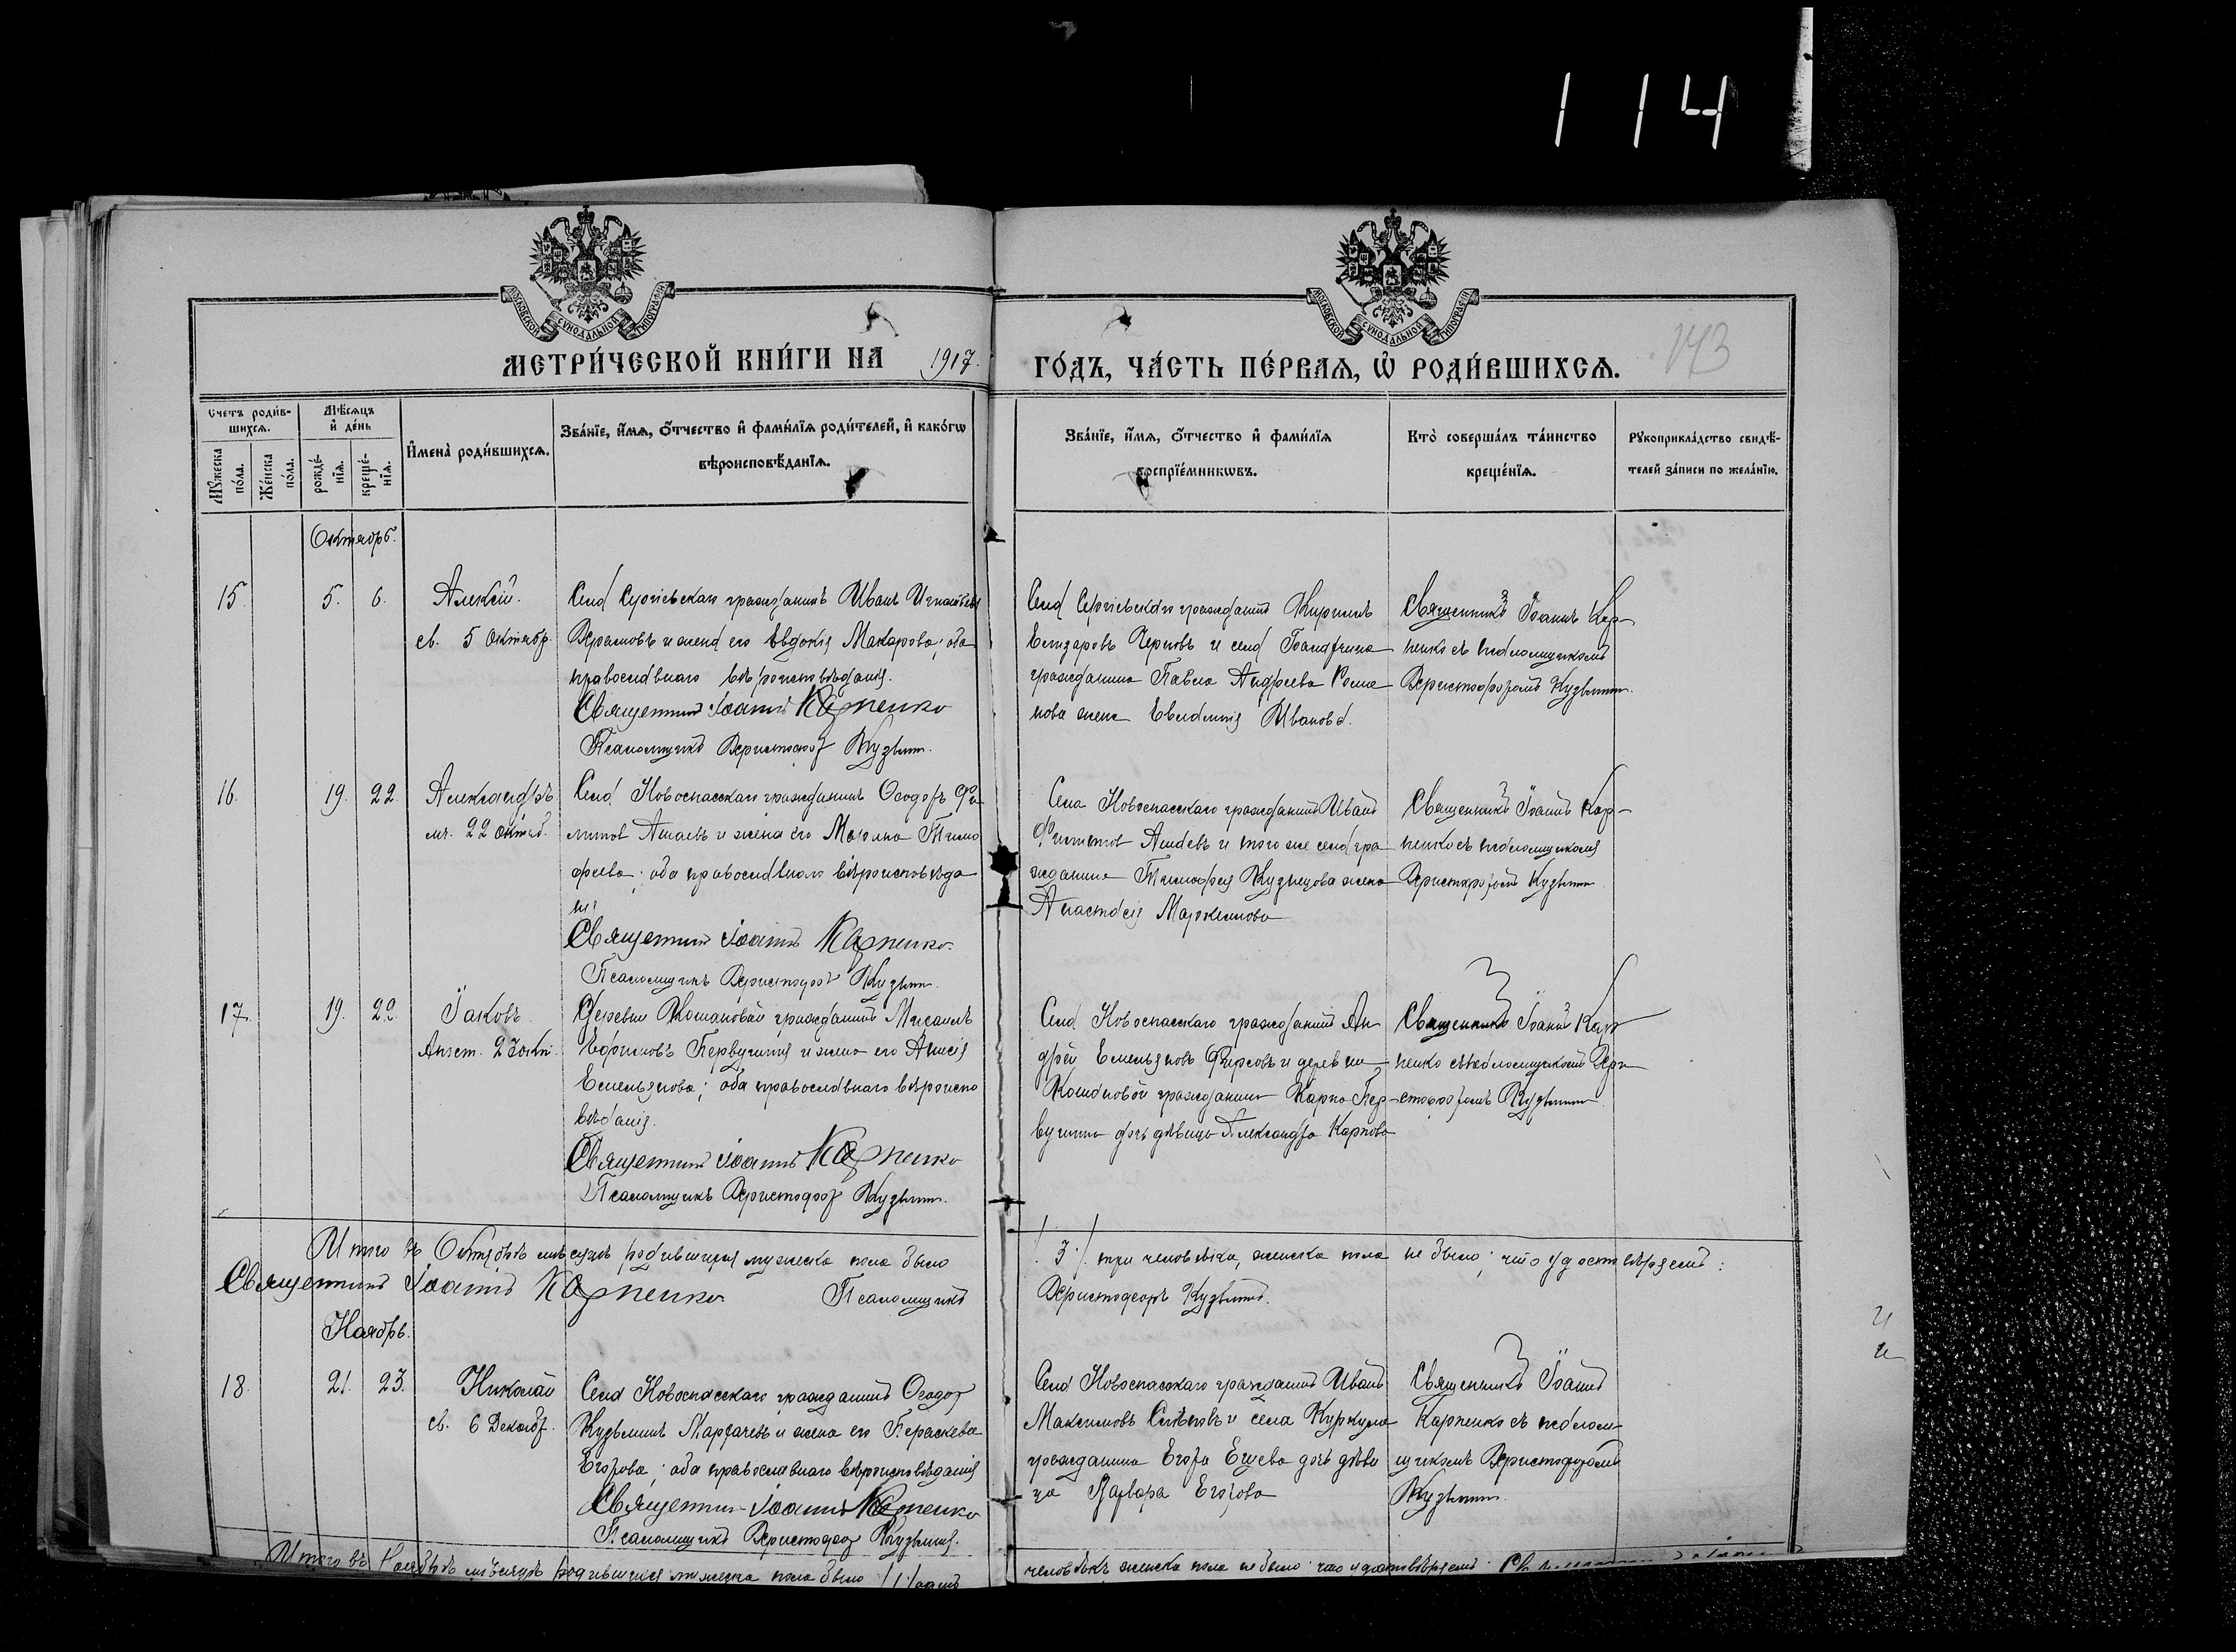 114
МОСКОВСКОЙ СѴНОДАЛЬНОЙ ТИПОГРАФІИ
МОСКОВСКОЙ СѴНОДАЛЬНОЙ ТИПОГРАФІИ
МЕТРИ́ЧЕСКОЙ КНИ́ГИ НА 1917. ГО́ДЪ, ЧА́СТЬ ПЕ́РВАѦ, Ѿ РОДИ́ВШИХСѦ.
143
Счетъ роди́в-
шихсѧ.
Мѣ́сѧцъ
и҆ де́нь
И҆мена̀ роди́вшихсѧ.
Зва́нїе, и҆́мѧ, ѻ҆́тчество и҆ фами́лїѧ роди́телей, и҆ како́гѡ
вѣроисповѣ́данїѧ.
Зва́нїе, и҆́мѧ, ѻ҆́тчество и҆ фами́лїѧ
воспрїе́мникѡвъ.
Кто̀ соверша́лъ та́инство
креще́нїѧ.
Рꙋкоприкла́дство свидѣ́-
телей за́писи по жела́нїю.
Мꙋ́жеска
по́ла.
Же́нска
по́ла.
рожде́-
нїѧ.
креще́-
нїѧ.
Октябрь.
15. 5. 6.
Алексій.
св. 5 октябр.
гражданинъ Иванъ
и жена его Евдокія Макарова; оба
православнаго вѣроисповѣданія.
Священникъ Іоаннъ Карпенко
Псаломщикъ Христофор Кузьмин.
Села гражданинъ Кирилъ
Елизаровъ Черновъ и села
гражданина Павла Андреева Рома
нова жена Иванова.
Священникъ Іоаннъ Кар-
пенко съ псаломщикомъ
Христофоромъ Кузьмин.
16. 19. 22.
Александръ
мч. 22 октяб.
Села Новоспасскаго гражданинъ Ѳеодоръ Фи
липов и жена его Марина Тимо
феева; оба православнаго вѣроисповѣда
нія
Священникъ Іоаннъ Карпенко.
Псаломщикъ Христофор Кузьмин.
Села Новоспасскаго гражданинъ Иванъ
Филипов и того же села гра
жданина Тимофея Кузнецова жена
Анастасія
Священникъ Іоаннъ Кар-
пенко съ псаломщикомъ
Христофоромъ Кузьмин
17. 19. 22.
Іаковъ
Апост. 23 окт.
Деревни гражданинъ Михаилъ
Ефимовъ Первушинъ и жена его Анисія
Емельянова; оба православнаго вѣроиспо
вѣданія.
Священникъ Іоаннъ Карпенко
Псаломщикъ Христофор Кузьмин.
Села Новоспасскаго гражданинъ Ан
дрей Емельяновъ Фирсовъ и деревни
гражданина Карпа Пер
вушина дочь дѣвица Александра Карпова
Священникъ Іоаннъ Кар
пенко съ псаломщикомъ Хри
стофоромъ Кузьмин
Итого въ Октябрѣ мѣсяцѣ родившихся мужеска пола было /3/ три человѣка, женска пола не было; что удостовѣряемъ:
Священникъ Іоаннъ Карпенко Псаломщикъ Христофоръ Кузьминъ.
Ноябрь.
18. 21. 23.
Николай
св. 6 Декабр.
Села Новоспасскаго гражданинъ Ѳеодор
Кузьминъ и жена его Параскева
Егорова; оба православнаго вѣроисповѣданія
Священник Іоаннъ Карпенко
Псаломщикъ Христофор Кузьминъ.
Села Новоспасскаго гражданинъ Иванъ
Максимовъ и села
гражданина Егора дочь дѣви
ца Варвара Егорова
Священникъ Іоаннъ
Карпенко съ псалом-
щикомъ Христофоромъ
Кузьмин.
Итого въ Ноябрѣ мѣсяцѣ родившихся мужеска пола было /1/ одинъ человѣкъ женска пола не было что удостовѣряемъ: